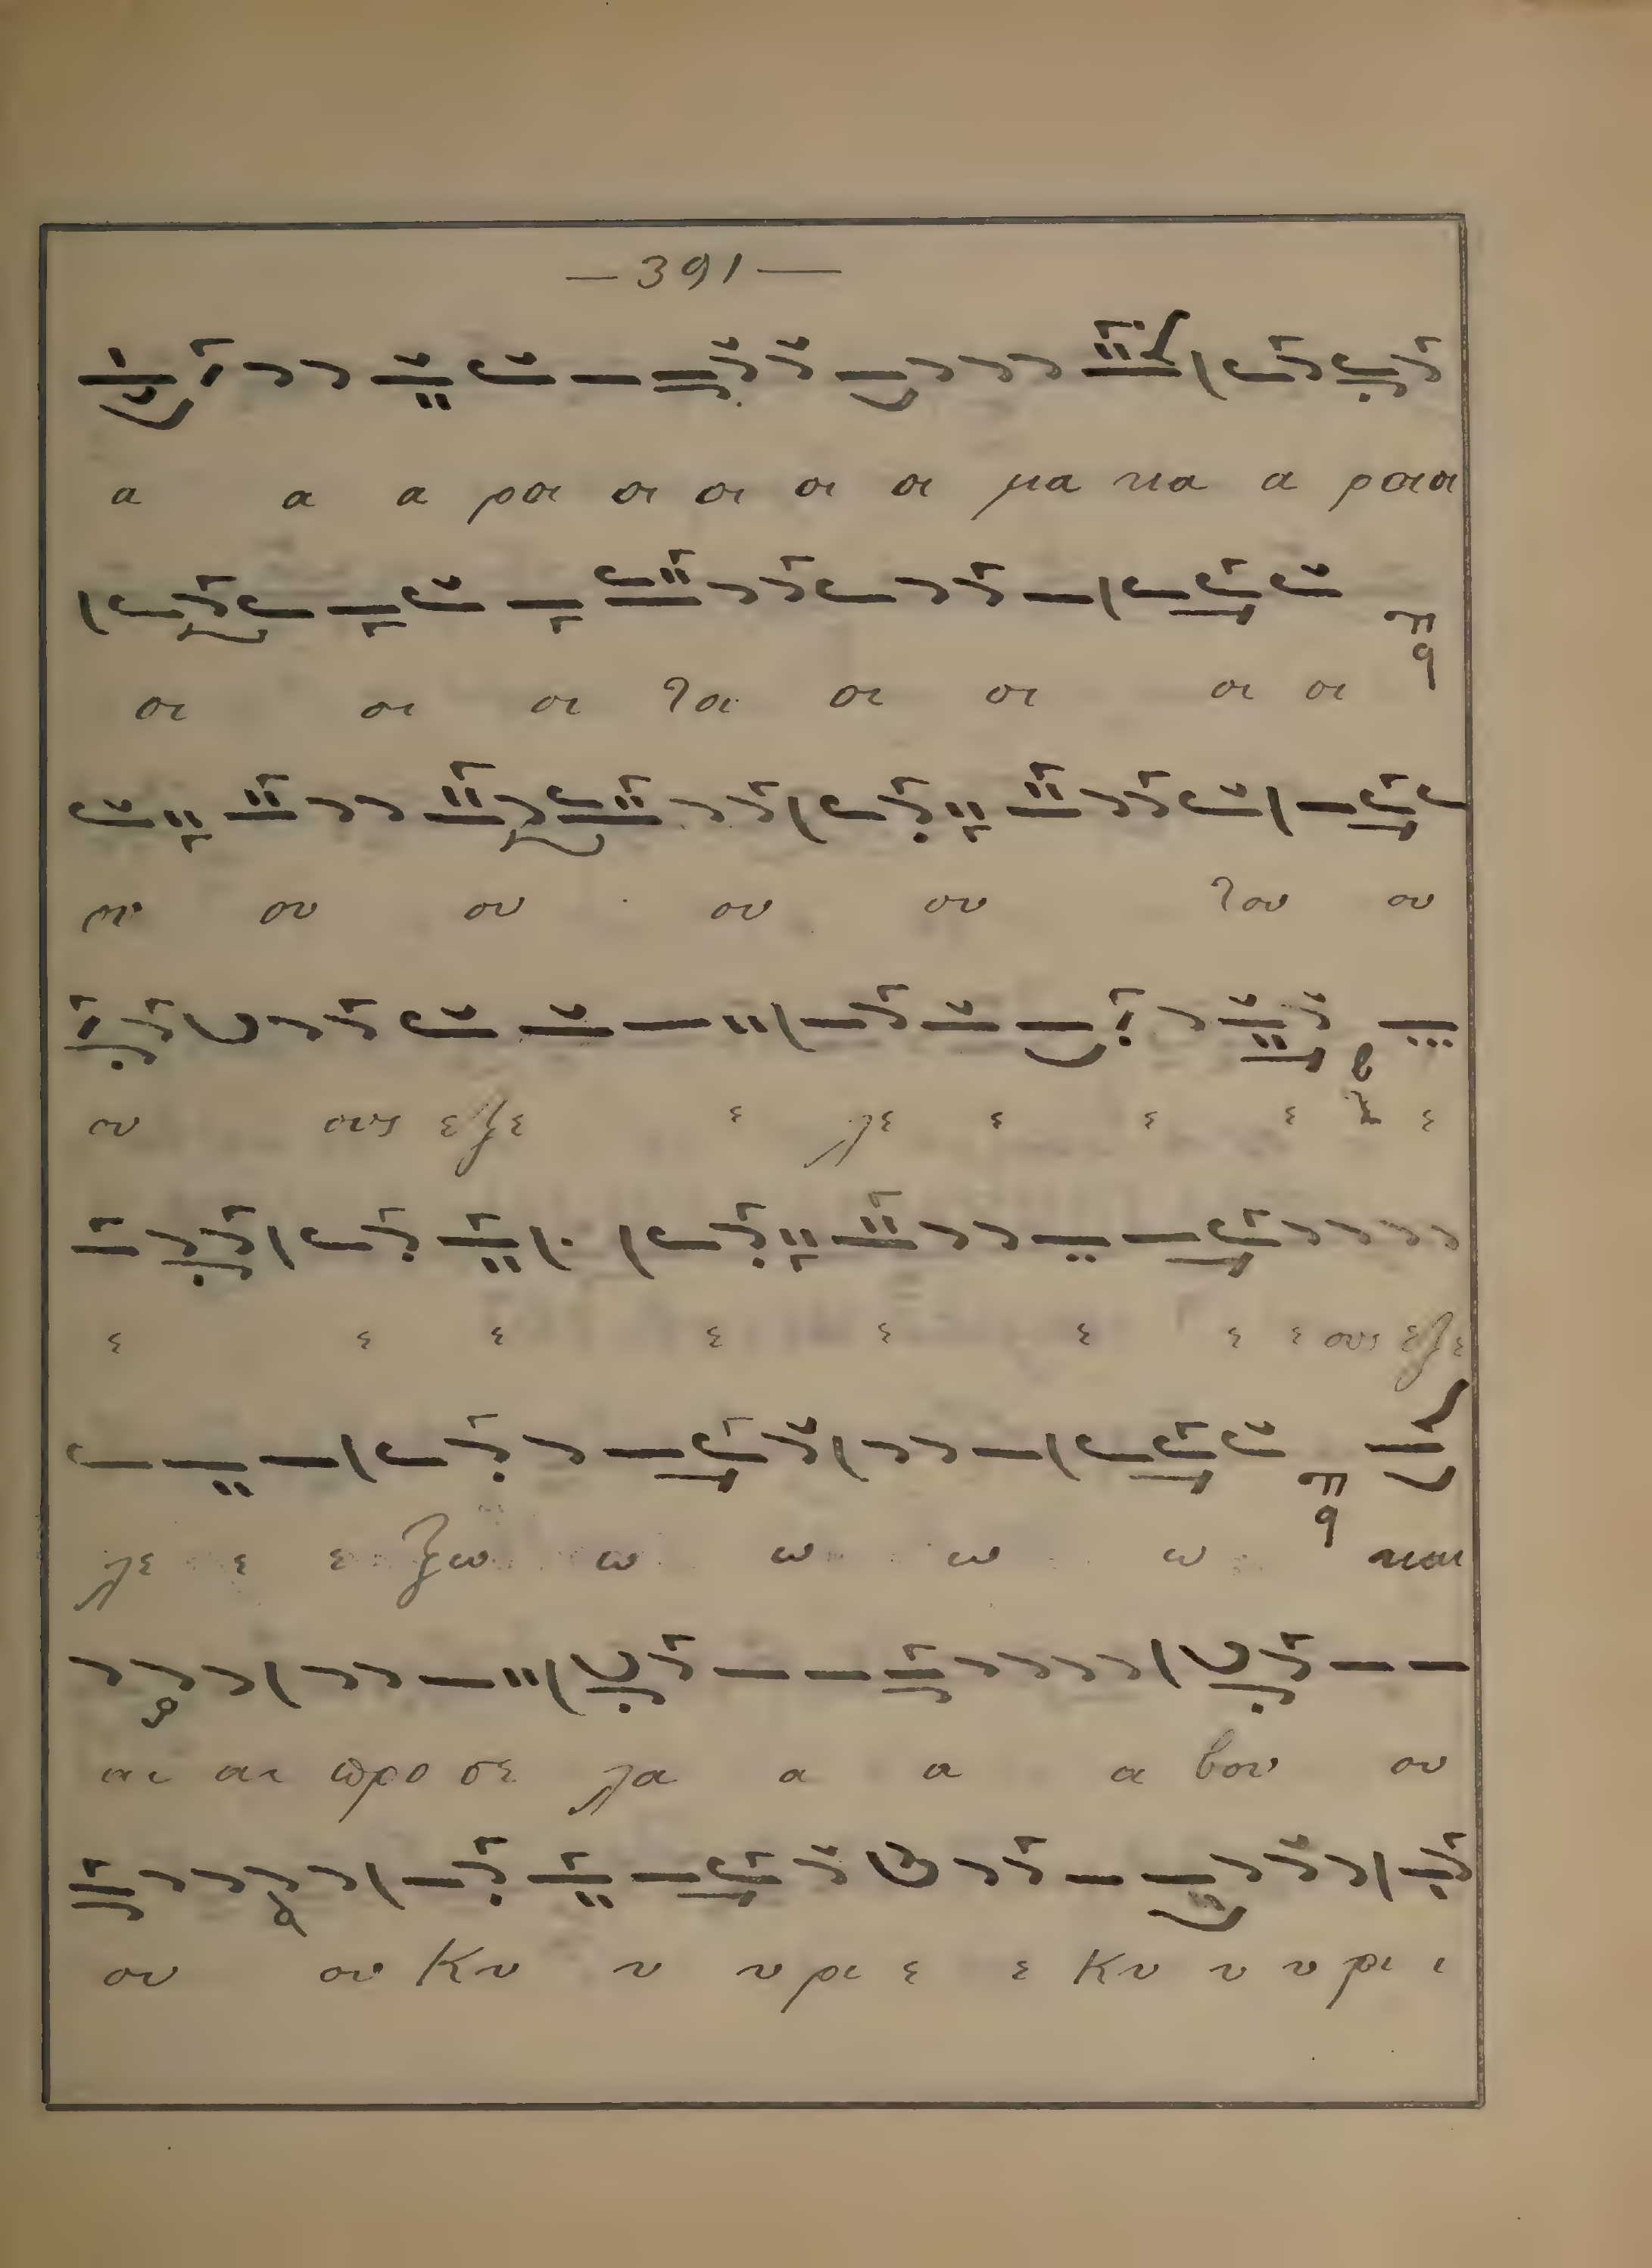 —391—
α α α ροι οι οι οι οι μα κα α ροιοι
οι οι οι ται οι οι οι οι
ου ου ου ου του ου
ου ους εξε ε λε ε ε ε ε
ε ε ε ε ε ε ε ε ους εξε
λε ε ε ξω ω ω ω ω και
αι αι προ σε λα α α α βου ου
ου ου Κυ υ υ ρι ε ε Κυ υ υ ρι ι